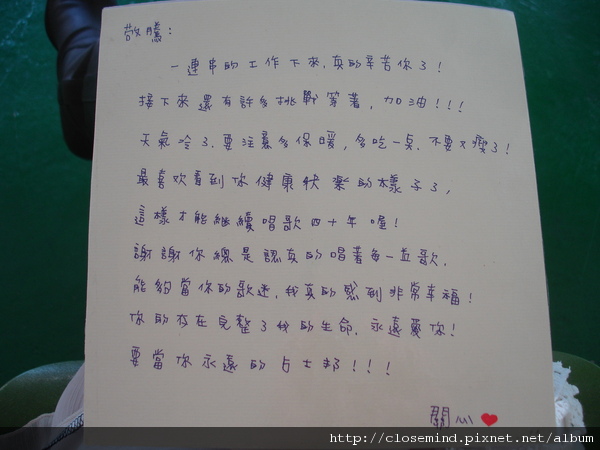 敬騰：
一連串的工作下來，真的辛苦你了！
接下來還有許多挑戰等著，加油！！！
天氣冷了，要注意多保暖，多吃一點，不要又瘦了！
最喜欢看到你健康快樂的樣子了，
這樣才能繼續唱歌四十年喔！
謝謝你總是認真的唱著每一首歌，
能夠當你的歌迷，我真的感到非常幸福！
你的存在完整了我的生命，永遠愛你！
要當你永遠的占士邦！！！
關心
http://closemind.pixnet.net/album